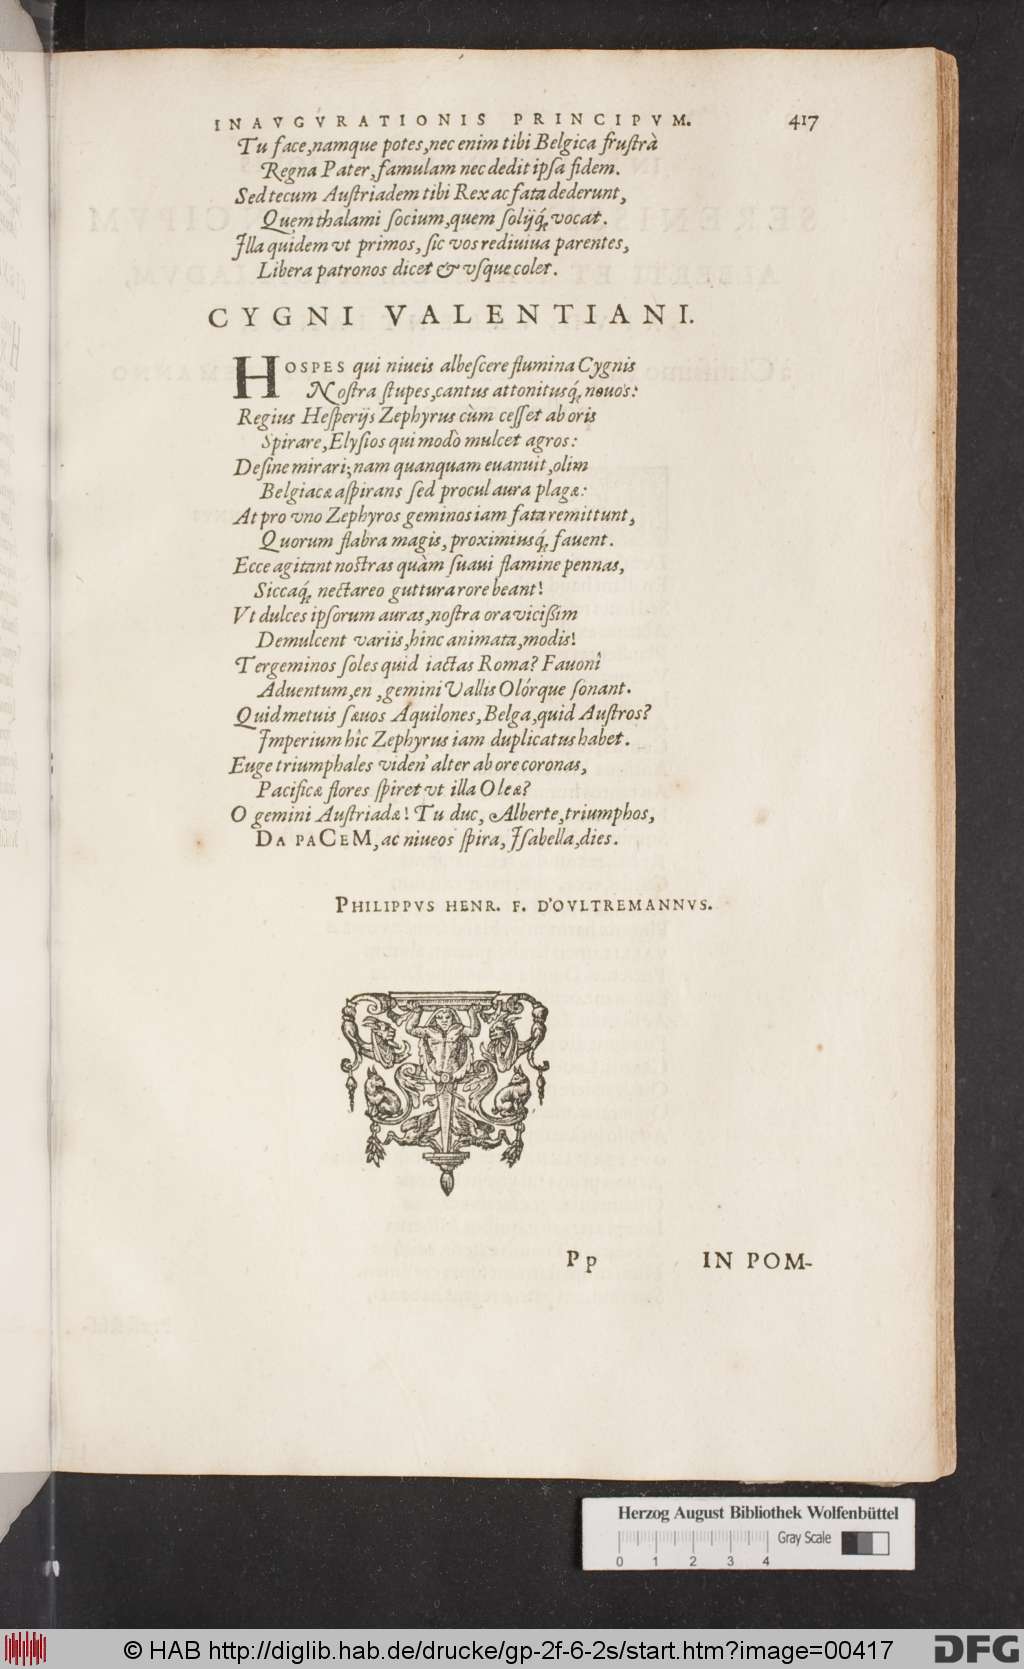 INAVGVRATIONIS PRINCIPVM. 417
Tu face, namque potes, nec enim tibi Belgica frustrà
Regna Pater, famulam nec dedit ipsa fidem.
Sed tecum Austriadem tibi Rex ac fata dederunt,
Quem thalami socium, quem solijq́; vocat.
Illa quidem vt primos, sic vos rediuiua parentes,
Libera patronos dicet & vsque colet.
CYGNI VALENTIANI.
HOSPES qui niueis albescere flumina Cygnis
Nostra stupes, cantus attonitusq́; nouos:
Regius Hesperijs Zephyrus cùm cesset ab oris
Spirare, Elysios qui modò mulcet agros:
Desine mirari; nam quanquam euanuit, olim
Belgiacæ aspirans sed procul aura plagæ:
At pro vno Zephyros geminos iam fata remittunt,
Quorum flabra magis, proximiusq́; fauent.
Ecce agitant nostras quàm suaui flamine pennas,
Siccaq́; nectareo guttura rore beant!
Vt dulces ipsorum auras, nostra ora vicißim
Demulcent variis, hinc animata, modis!
Tergeminos soles quid iactas Roma? Fauonî
Aduentum, en, gemini Vallis Olórque sonant.
Quid metuis sæuos Aquilones, Belga, quid Austros?
Imperium hîc Zephyrus iam duplicatus habet.
Euge triumphales viden' alter ab ore coronas,
Pacificæ flores spiret vt illa Oleæ?
O gemini Austriadæ! Tu duc, Alberte, triumphos,
DA PACEM, ac niueos spira, Isabella, dies.
PHILIPPVS HENR. F. D'OVLTREMANNVS.
Pp IN POM-
Herzog August Bibliothek Wolfenbüttel
Gray Scale
0 1 2 3 4
© HAB http://diglib.hab.de/drucke/gp-2f-6-2s/start.htm?image=00417 DFG